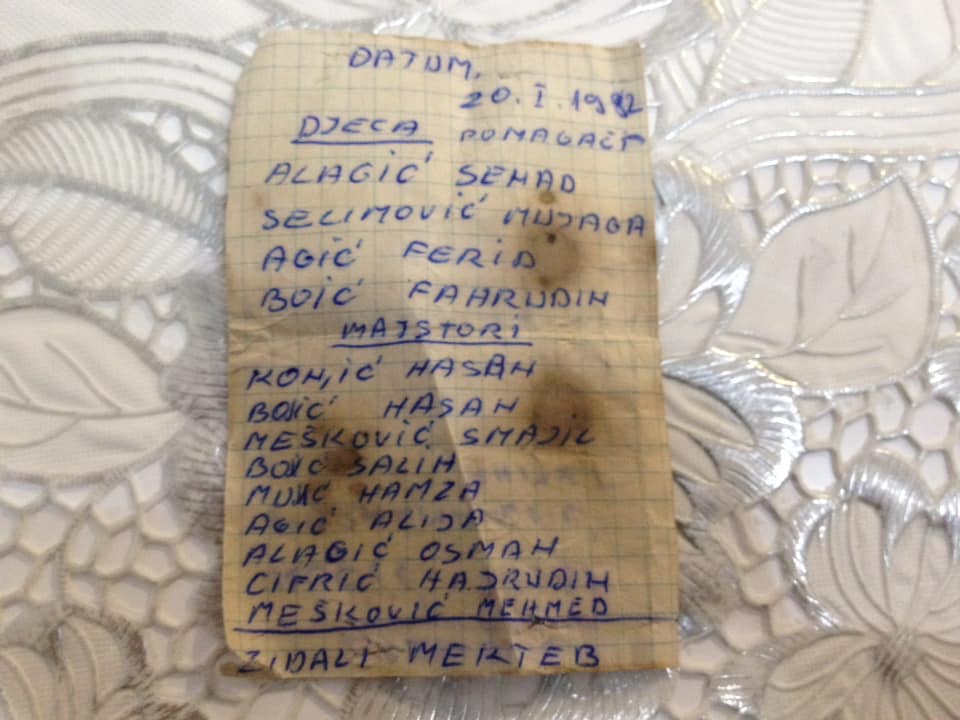 DATUM.
20.I.1982
DJECA POMAGAČI
ALAGIĆ SENAD
SELIMOVIĆ MUJAGA
AGIĆ FERID
BOIĆ FAHRUDIN
MAJSTORI
KONJIĆ HASAN
BOJIĆ HASAN
MEŠKOVIĆ SMAJIL
SALIH
HAMZA
AGIĆ ALIJA
ALAGIĆ OSMAN
CIFRIĆ HAJRUDIN
MEŠKOVIĆ MEHMED
ZIDALI MEKTEB